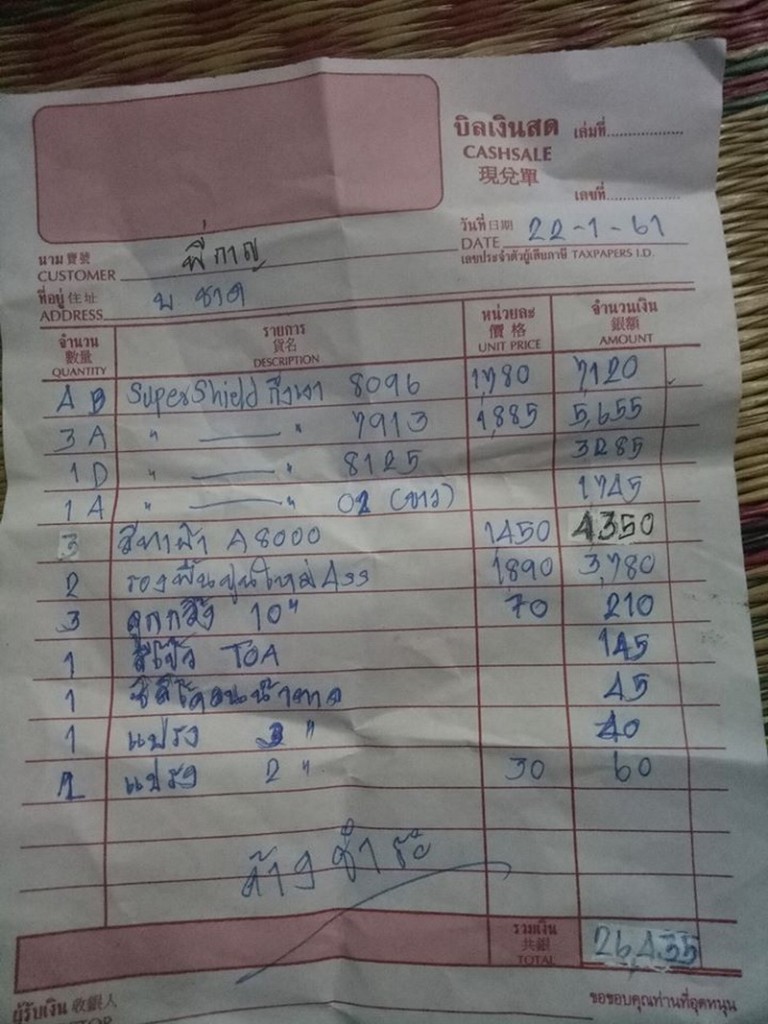 บิลเงินสด เล่มที่
CASHSALE
現兌單
เลขที่
วันที่ 日期 22-1-61
DATE
เลขประจำตัวผู้เสียภาษี TAXPAPERS I.D.
นาม 寶號 พี่กาญ
CUSTOMER
ที่อยู่ 住址
ADDRESS
จำนวน รายการ หน่วยละ จำนวนเงิน
數量 貨名 價格 銀額
QUANTITY DESCRIPTION UNIT PRICE AMOUNT
4 B SuperShield กึ่งเงา 8096 1780 7120
3 A " " 7913 1,885 5,655
1 D " " 8125 3285
1 A " " 02 (ขาว) 1745
3 สีทาฝ้า A8000 1450 4350
2 รองพื้นปูนใหม่ 1890 3,780
3 ลูกกลิ้ง 10" 70 210
1 สีโป๊ว TOA 145
1 45
1 แปรง 3" 40
แปรง 2" 30 60
ค้างชำระ
รวมเงิน
共銀
TOTAL 26,435
ผู้รับเงิน 收銀人
ขอขอบคุณท่านที่อุดหนุน